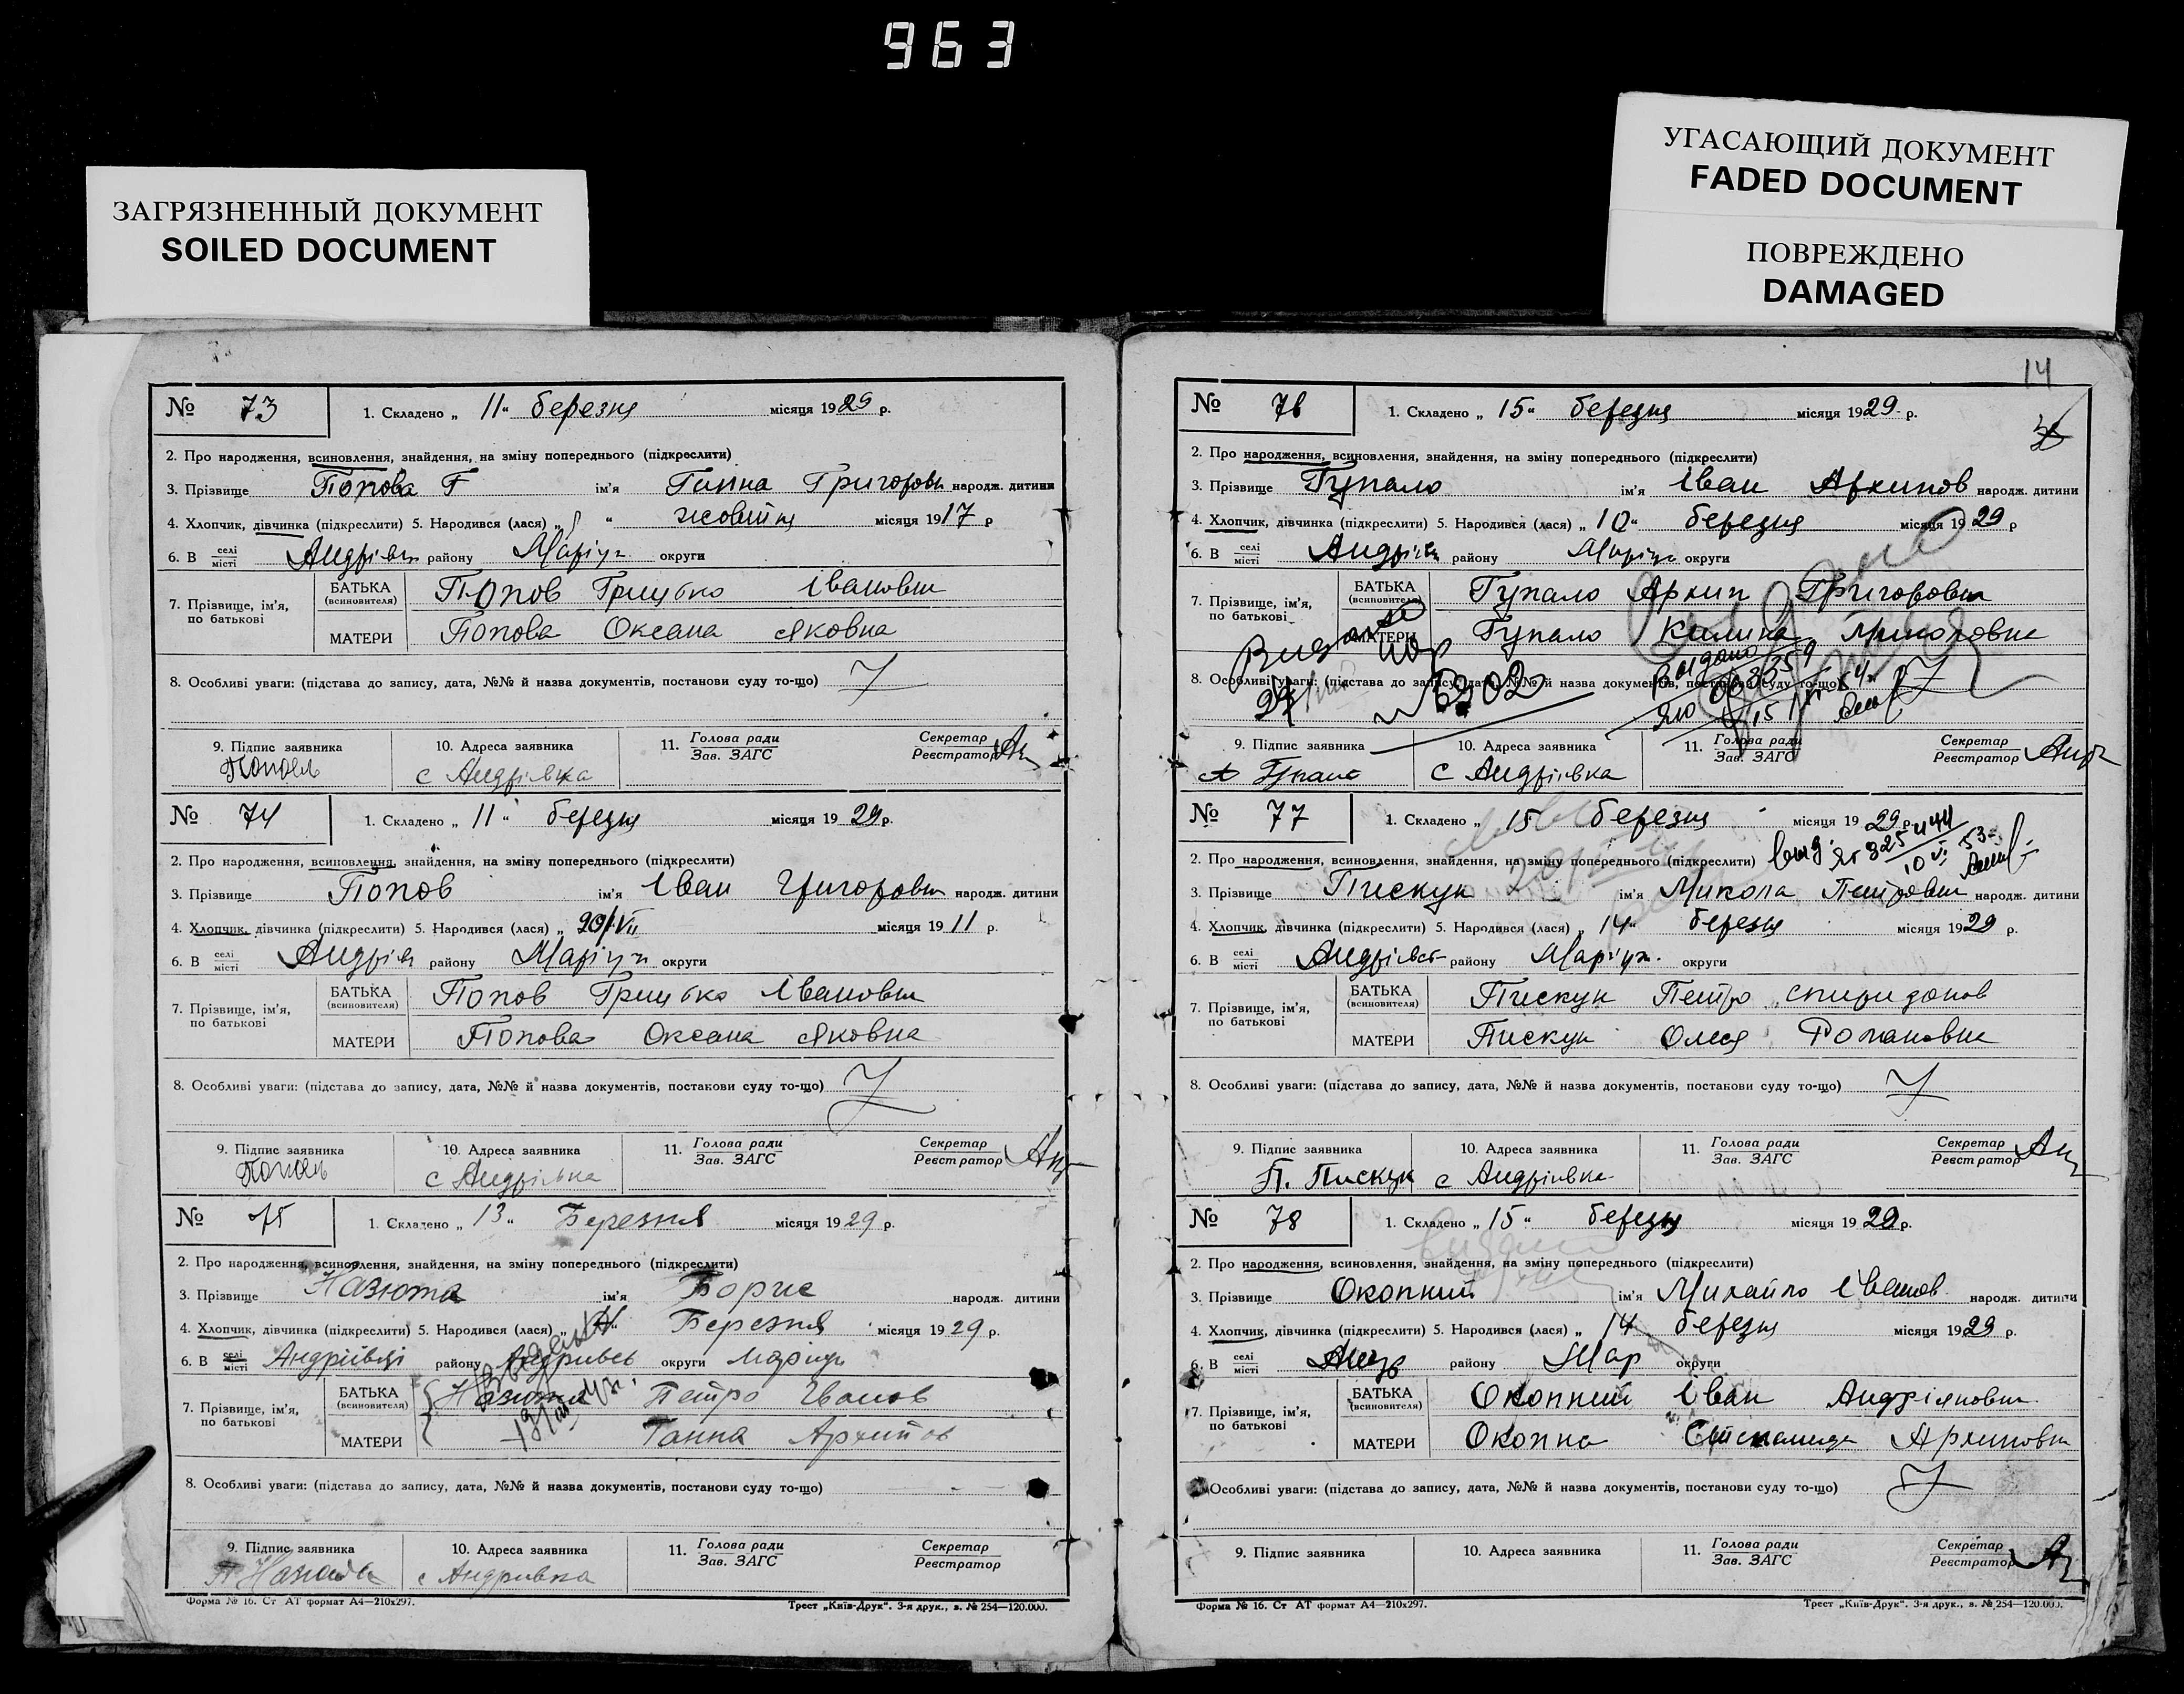 963
ЗАГРЯЗНЕННЫЙ ДОКУМЕНТ
SOILED DOCUMENT
УГАСАЮЩИЙ ДОКУМЕНТ
FADED DOCUMENT
ПОВРЕЖДЕНО
DAMAGED
№ 73 1. Складено „ 11 “ березня місяця 1929 р.
2. Про народження, всиновлення, знайдення, на зміну попереднього (підкреслити)
3. Прізвище Попова ім'я Ганна Григоровн народж. дитини
4. Хлопчик, дівчинка (підкреслити) 5. Народився (лася) „ “ жовтня місяця 1917 р
6. В селі місті Андрівк району Маріуп округи
7. Прізвище, ім'я, по батькові
БАТЬКА (всиновителя) Попов Грицько Іванович
МАТЕРИ Попова Оксана Яковна
8. Особливі уваги: (підстава до запису, дата, №№ й назва документів, постанови суду то-що)
9. Підпис заявника 10. Адреса заявника 11. Голова ради Зав. ЗАГС Секретар Реєстратор
с Андрівка
№ 74 1. Складено „ 11 “ березня місяця 1929 р.
2. Про народження, всиновлення, знайдення, на зміну попереднього (підкреслити)
3. Прізвище Попов ім'я Іван Григорович народж. дитини
4. Хлопчик, дівчинка (підкреслити) 5. Народився (лася) „ 20/VII місяця 1911 р.
6. В селі місті Андрів району Маріуп округи
7. Прізвище, ім'я, по батькові
БАТЬКА (всиновителя) Попов Грицько Іванович
МАТЕРИ Попова Оксана Яковна
8. Особливі уваги: (підстава до запису, дата, №№ й назва документів, постанови суду то-що)
9. Підпис заявника 10. Адреса заявника 11. Голова ради Зав. ЗАГС Секретар Реєстратор
с Андрівка
№ 75 1. Складено „ 13 “ Березня місяця 1929 р.
2. Про народження, всиновлення, знайдення, на зміну попереднього (підкреслити)
3. Прізвище Назюта ім'я Борис народж. дитини
4. Хлопчик, дівчинка (підкреслити) 5. Народився (лася) „ “ Березня місяця 1929 р.
6. В селі місті Андріівці району Андривсь округи Маріуп
7. Прізвище, ім'я, по батькові
БАТЬКА (всиновителя) Назюта Петро Іванов
МАТЕРИ Ганна Архипов
8. Особливі уваги: (підстава до запису, дата, №№ й назва документів, постанови суду то-що)
9. Підпис заявника 10. Адреса заявника 11. Голова ради Зав. ЗАГС Секретар Реєстратор
П Назюта с Андривка
Форма № 16. Ст АТ формат А4—210x297. Трест „Київ-Друк“. 3-я друк., з. № 254—120.000.
14
№ 76 1. Складено „ 15 “ березня місяця 1929 р.
2. Про народження, всиновлення, знайдення, на зміну попереднього (підкреслити)
3. Прізвище Гупало ім'я Іван Архипов народж. дитини
4. Хлопчик, дівчинка (підкреслити) 5. Народився (лася) „ 10 “ березня місяця 1929 р
6. В селі місті Андрівк району Маріуп округи
7. Прізвище, ім'я, по батькові
БАТЬКА (всиновителя) Гупало Архип Григорович
МАТЕРИ Гупало Килина
8. Особливі уваги: (підстава до запису, дата, №№ й назва документів, постанови суду то-що)
9. Підпис заявника 10. Адреса заявника 11. Голова ради Зав. ЗАГС Секретар Реєстратор
А Гупало с Андрівка
№ 77 1. Складено „ 15 “ березня місяця 1929 р.
2. Про народження, всиновлення, знайдення, на зміну попереднього (підкреслити)
3. Прізвище Пискун ім'я Микола Петрович народж. дитини
4. Хлопчик, дівчинка (підкреслити) 5. Народився (лася) „ 14 “ березня місяця 1929 р.
6. В селі місті Андрівськ району Маріуп. округи
7. Прізвище, ім'я, по батькові
БАТЬКА (всиновителя) Пискун Петро Спиридонов
МАТЕРИ Пискун Олеся Романовна
8. Особливі уваги: (підстава до запису, дата, №№ й назва документів, постанови суду то-що)
9. Підпис заявника 10. Адреса заявника 11. Голова ради Зав. ЗАГС Секретар Реєстратор
П. Пискун с Андріівка
№ 78 1. Складено „ 15 “ березня місяця 1929 р.
2. Про народження, всиновлення, знайдення, на зміну попереднього (підкреслити)
3. Прізвище Окопний ім'я Михайло Іванов народж. дитини
4. Хлопчик, дівчинка (підкреслити) 5. Народився (лася) „ 14 березня місяця 1929 р.
6. В селі місті району Мар округи
7. Прізвище, ім'я, по батькові
БАТЬКА (всиновителя) Окопний Іван Андріянович
МАТЕРИ Окопна Степанида Архиповн
Особливі уваги: (підстава до запису, дата, №№ й назва документів, постанови суду то-що)
9. Підпис заявника 10. Адреса заявника 11. Голова ради Зав. ЗАГС Секретар Реєстратор
Форма № 16. Ст АТ формат А4—210x297. Трест „Київ-Друк“. 3-я друк., з. № 254—120.000.